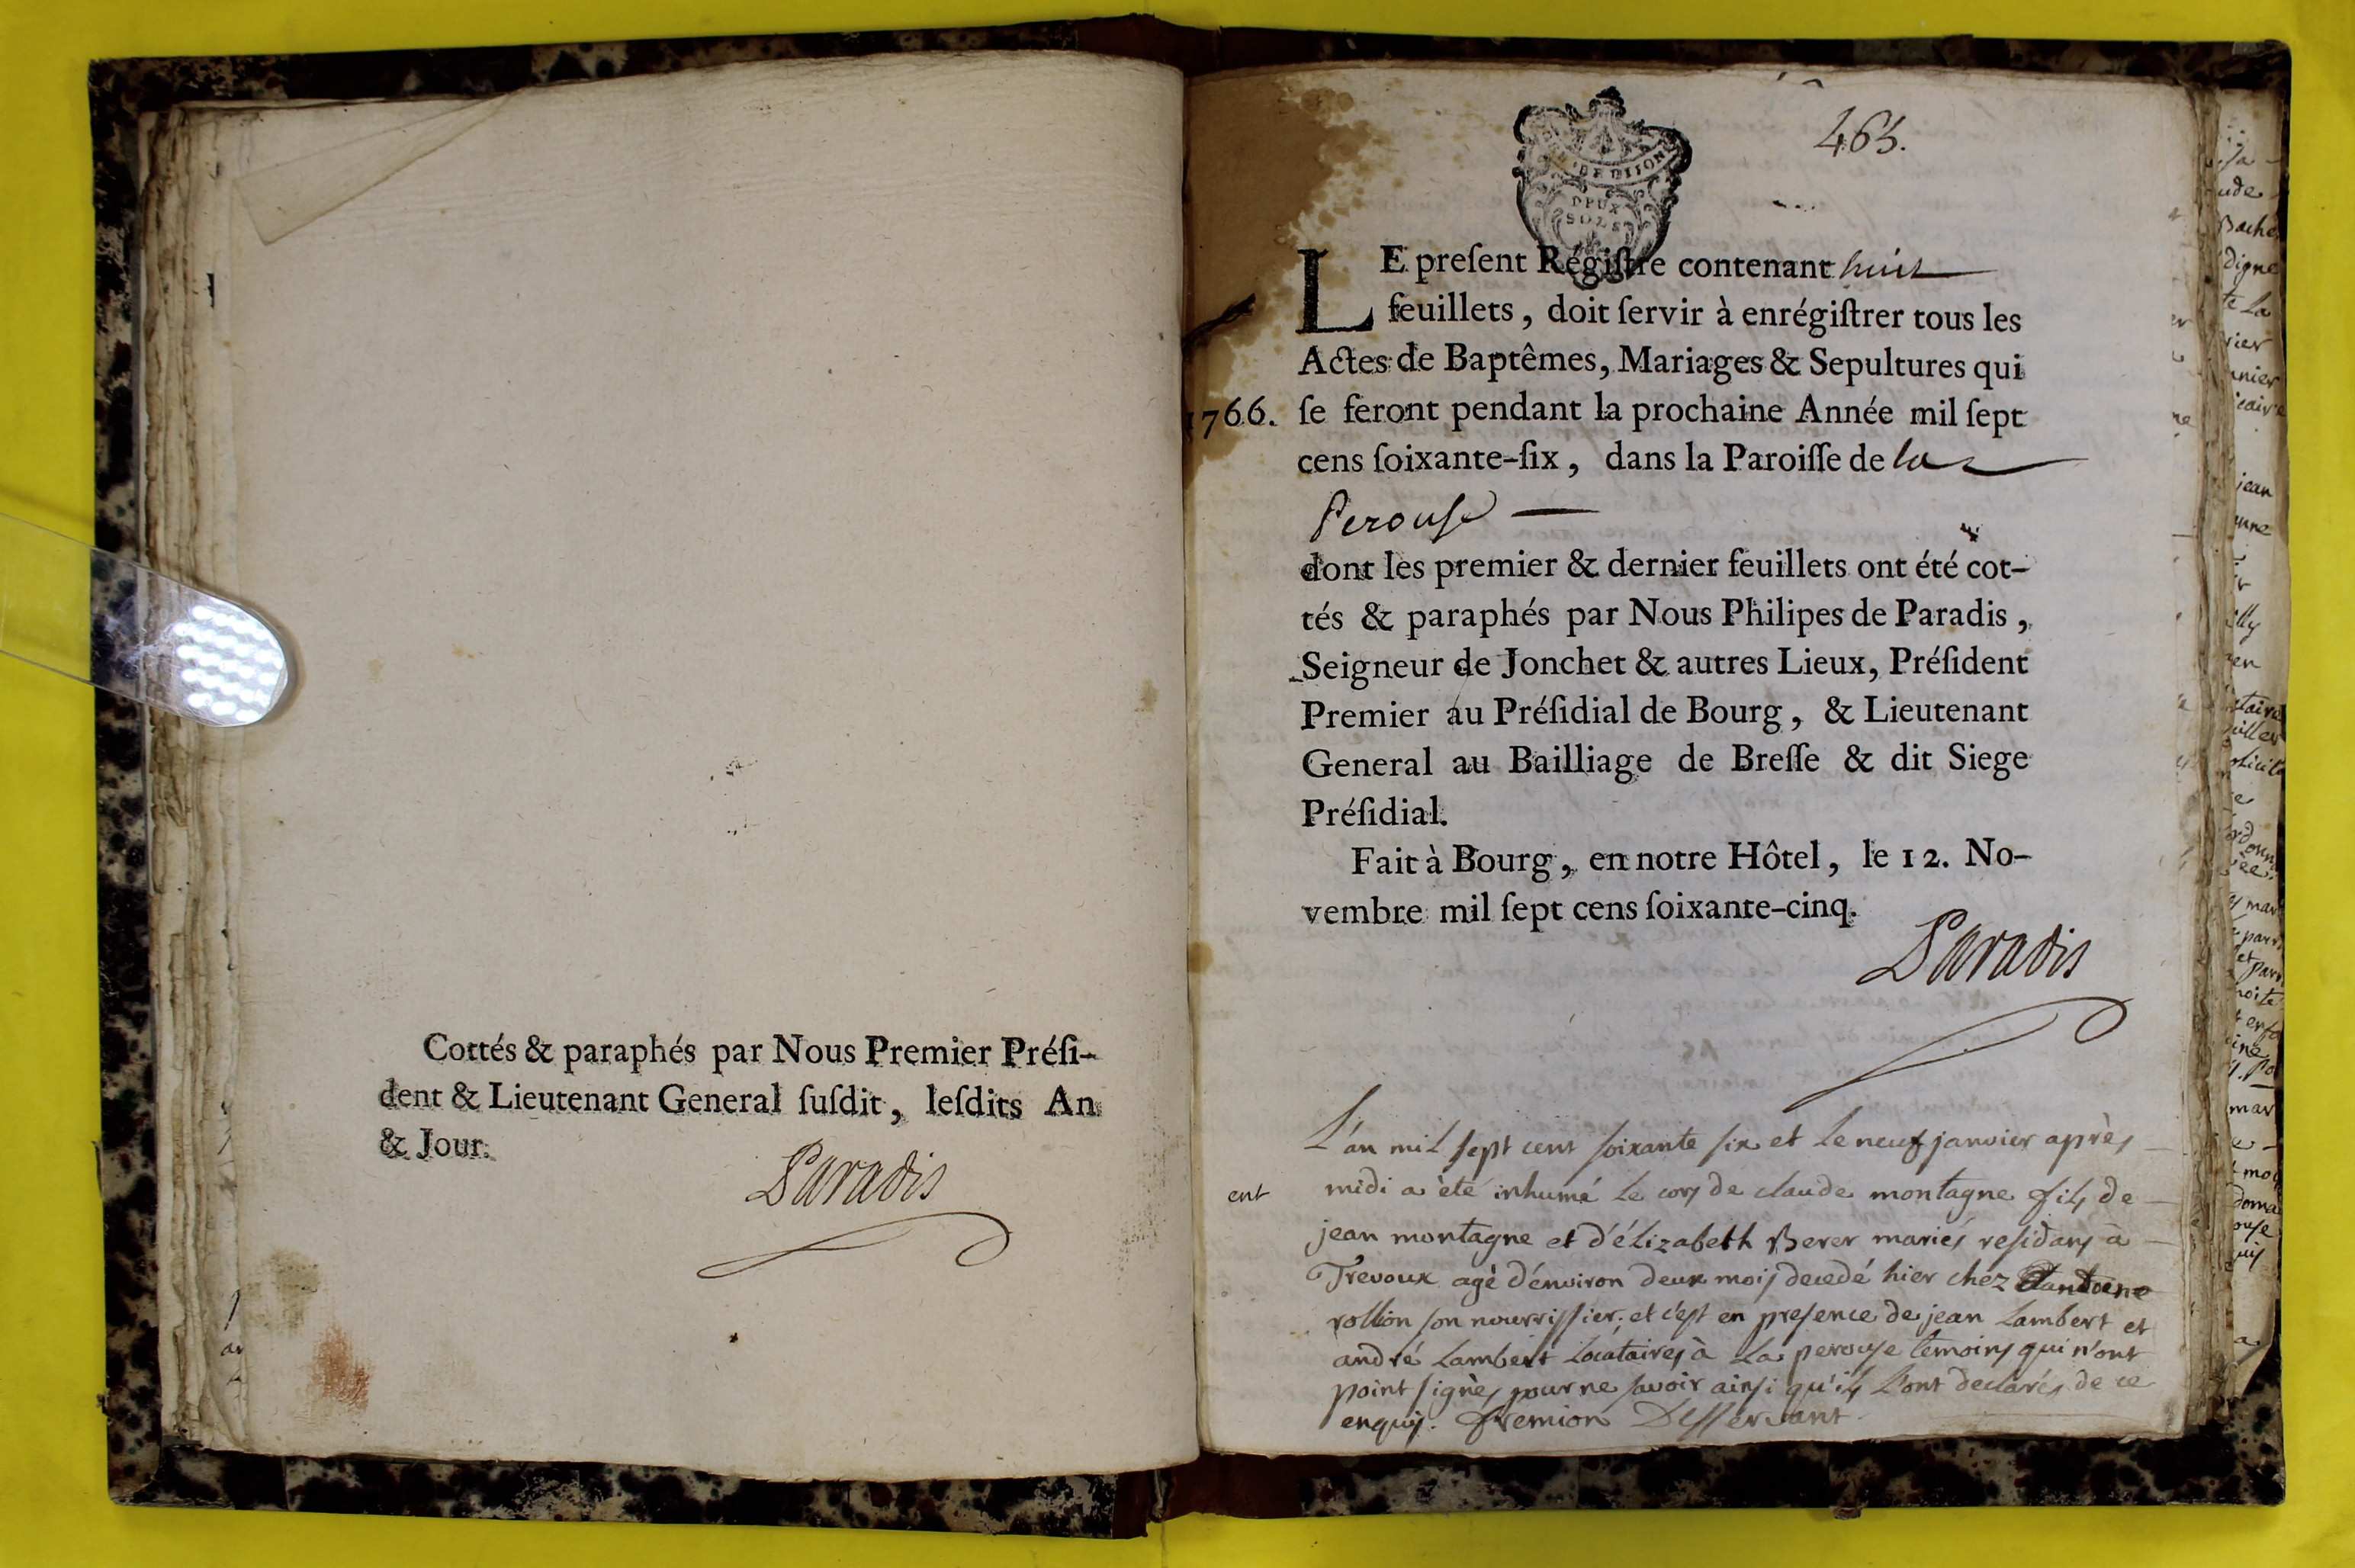 Cottés & paraphés par Nous Premier Préſi-
dent & Lieutenant General ſuſdit, leſdits An
& Jour.
Paradis
463.
DE DIJON
DEUX
SOLS
LE preſent Régiſtre contenant huit
feuillets, doit ſervir à enrégiſtrer tous les
Actes de Baptêmes, Mariages & Sepultures qui
1766. ſe feront pendant la prochaine Année mil ſept
cens ſoixante-ſix, dans la Paroiſſe de la
Perouſe
dont les premier & dernier feuillets ont été cot-
tés & paraphés par Nous Philipes de Paradis,
Seigneur de Jonchet & autres Lieux, Préſident
Premier au Préſidial de Bourg, & Lieutenant
General au Bailliage de Breſſe & dit Siege
Préſidial.
Fait à Bourg, en notre Hôtel, le 12. No-
vembre mil ſept cens ſoixante-cinq.
Paradis
L'an mil sept cent soixante six et le neuf janvier après
ent midi a èté inhumé le corps de claude montagne fils de
jean montagne et d'élizabeth Berer mariés residans à
Trevoux agè d'environ deux mois decedé hier chez
rollion son nourrissier; et c'est en presence de jean Lambert et
andré Lambert Locataires à La perouse temoins qui n'ont
point signès pour ne savoir ainsi qu'ils l'ont declarés de ce
enquis. fremion Desservant